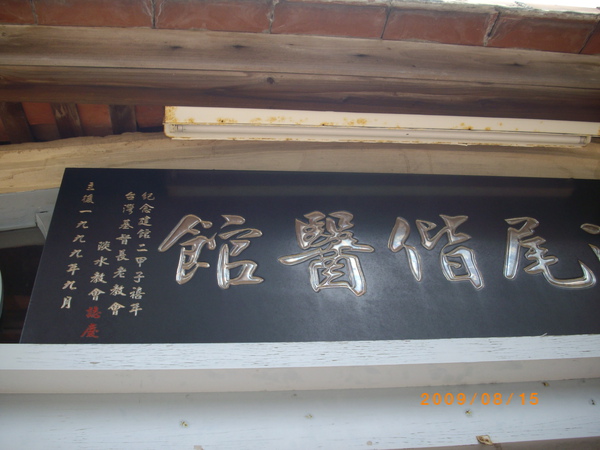 尾偕醫館
紀念建館二甲子禧年
台灣基督長老教會
淡水教會 誌慶
主後一九九九年九月
2009/08/15